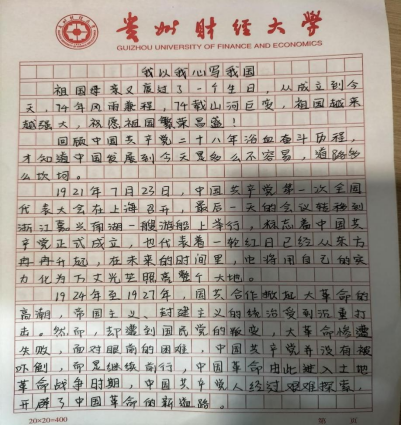 贵州财经大学
GUIZHOU UNIVERSITY OF FINANCE AND ECONOMICS
我以我心写我国
祖国母亲又度过了一个生日，从成立到今
天，74年风雨兼程，74载山河巨变，祖国越来
越强大，祝愿祖国繁荣昌盛！
回顾中国共产党二十八年浴血奋斗历程，
才知道中国发展到今天是多么不容易，道路多
么坎坷。
1921年7月23日，中国共产党第一次全国
代表大会在上海召开，最后一天的会议转移到
浙江嘉兴南湖一艘游船上举行，标志着中国共
产党正式成立，也代表着一轮红日已经从东方
冉冉升起，在未来的时间里，也将用自己的实
力化为万丈光芒照亮整个大地。
1924年至1927年，国共合作掀起大革命的
高潮，帝国主义、封建主义的统治受到沉重打
击。然而，却遭到国民党的叛变，大革命惨遭
失败，面对眼前的困难，中国共产党并没有被
吓倒，而是继续前行，中国革命由此进入土地
革命战争时期，中国共产党人经过艰难探索，
开辟了中国革命的新道路。
20×20=400
第 页